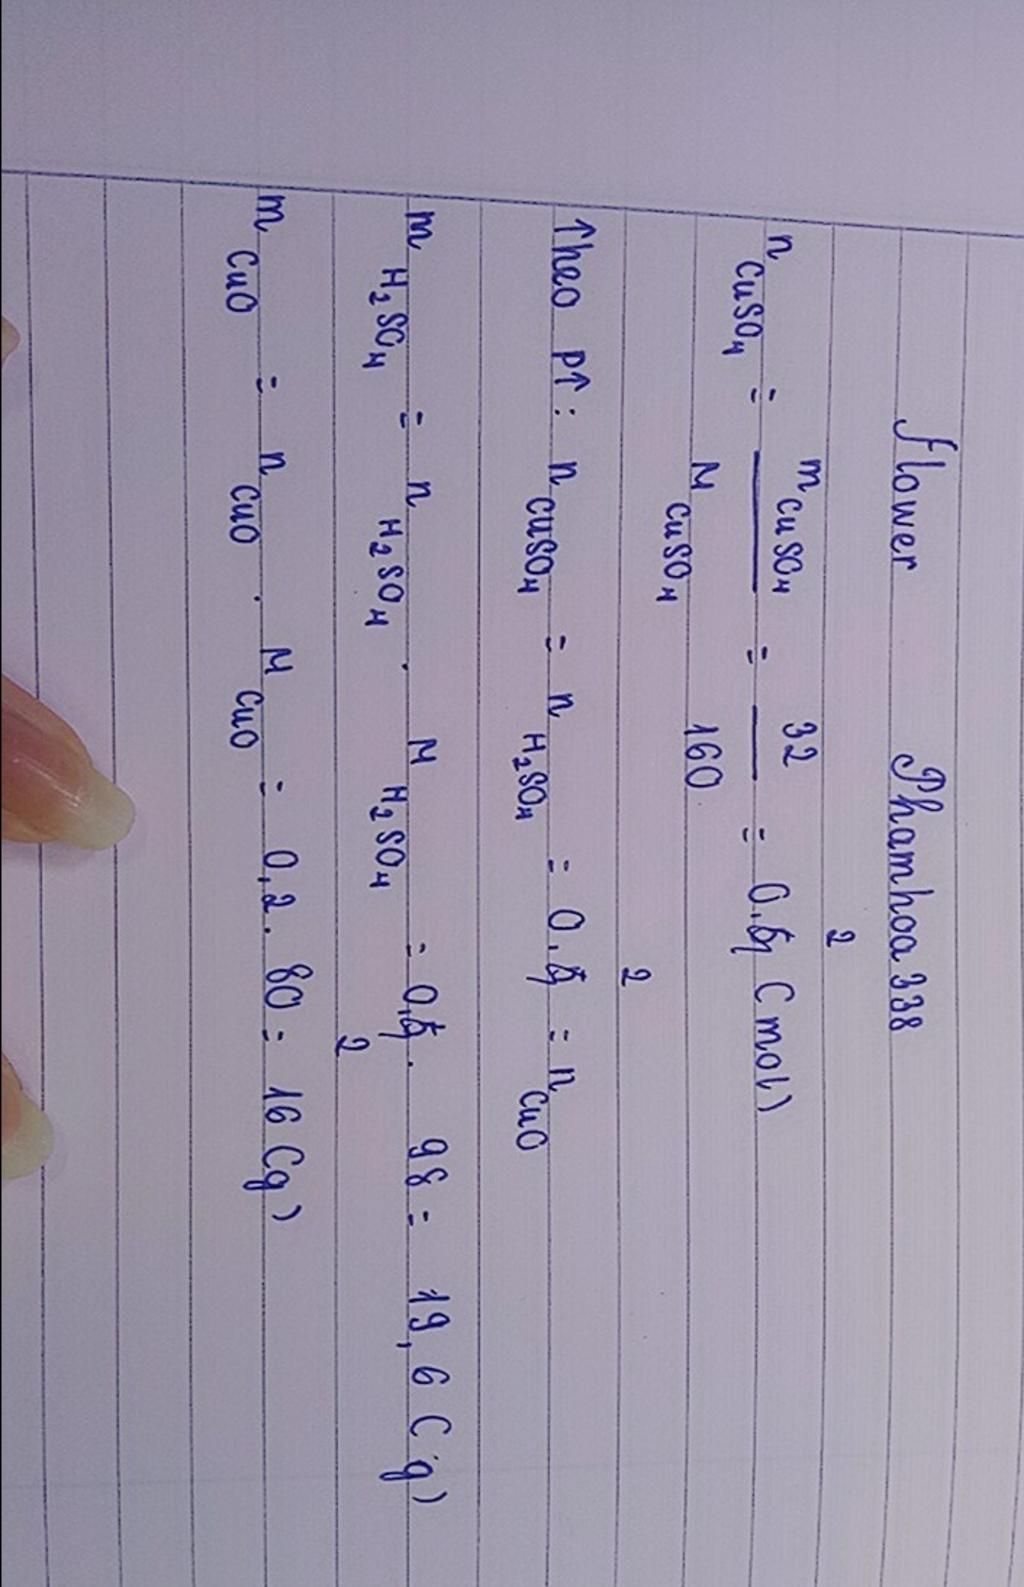 flower Phamhoa338
n CuSO4 = m CuSO4 / M CuSO4 = 32 / 160 = 0,2 (mol)
Theo pt: n CuSO4 = n H2SO4 = 0,2 = n CuO
m H2SO4 = n H2SO4 . M H2SO4 = 0,2 . 98 = 19,6 (g)
m CuO = n CuO . M CuO = 0,2 . 80 = 16 (g)